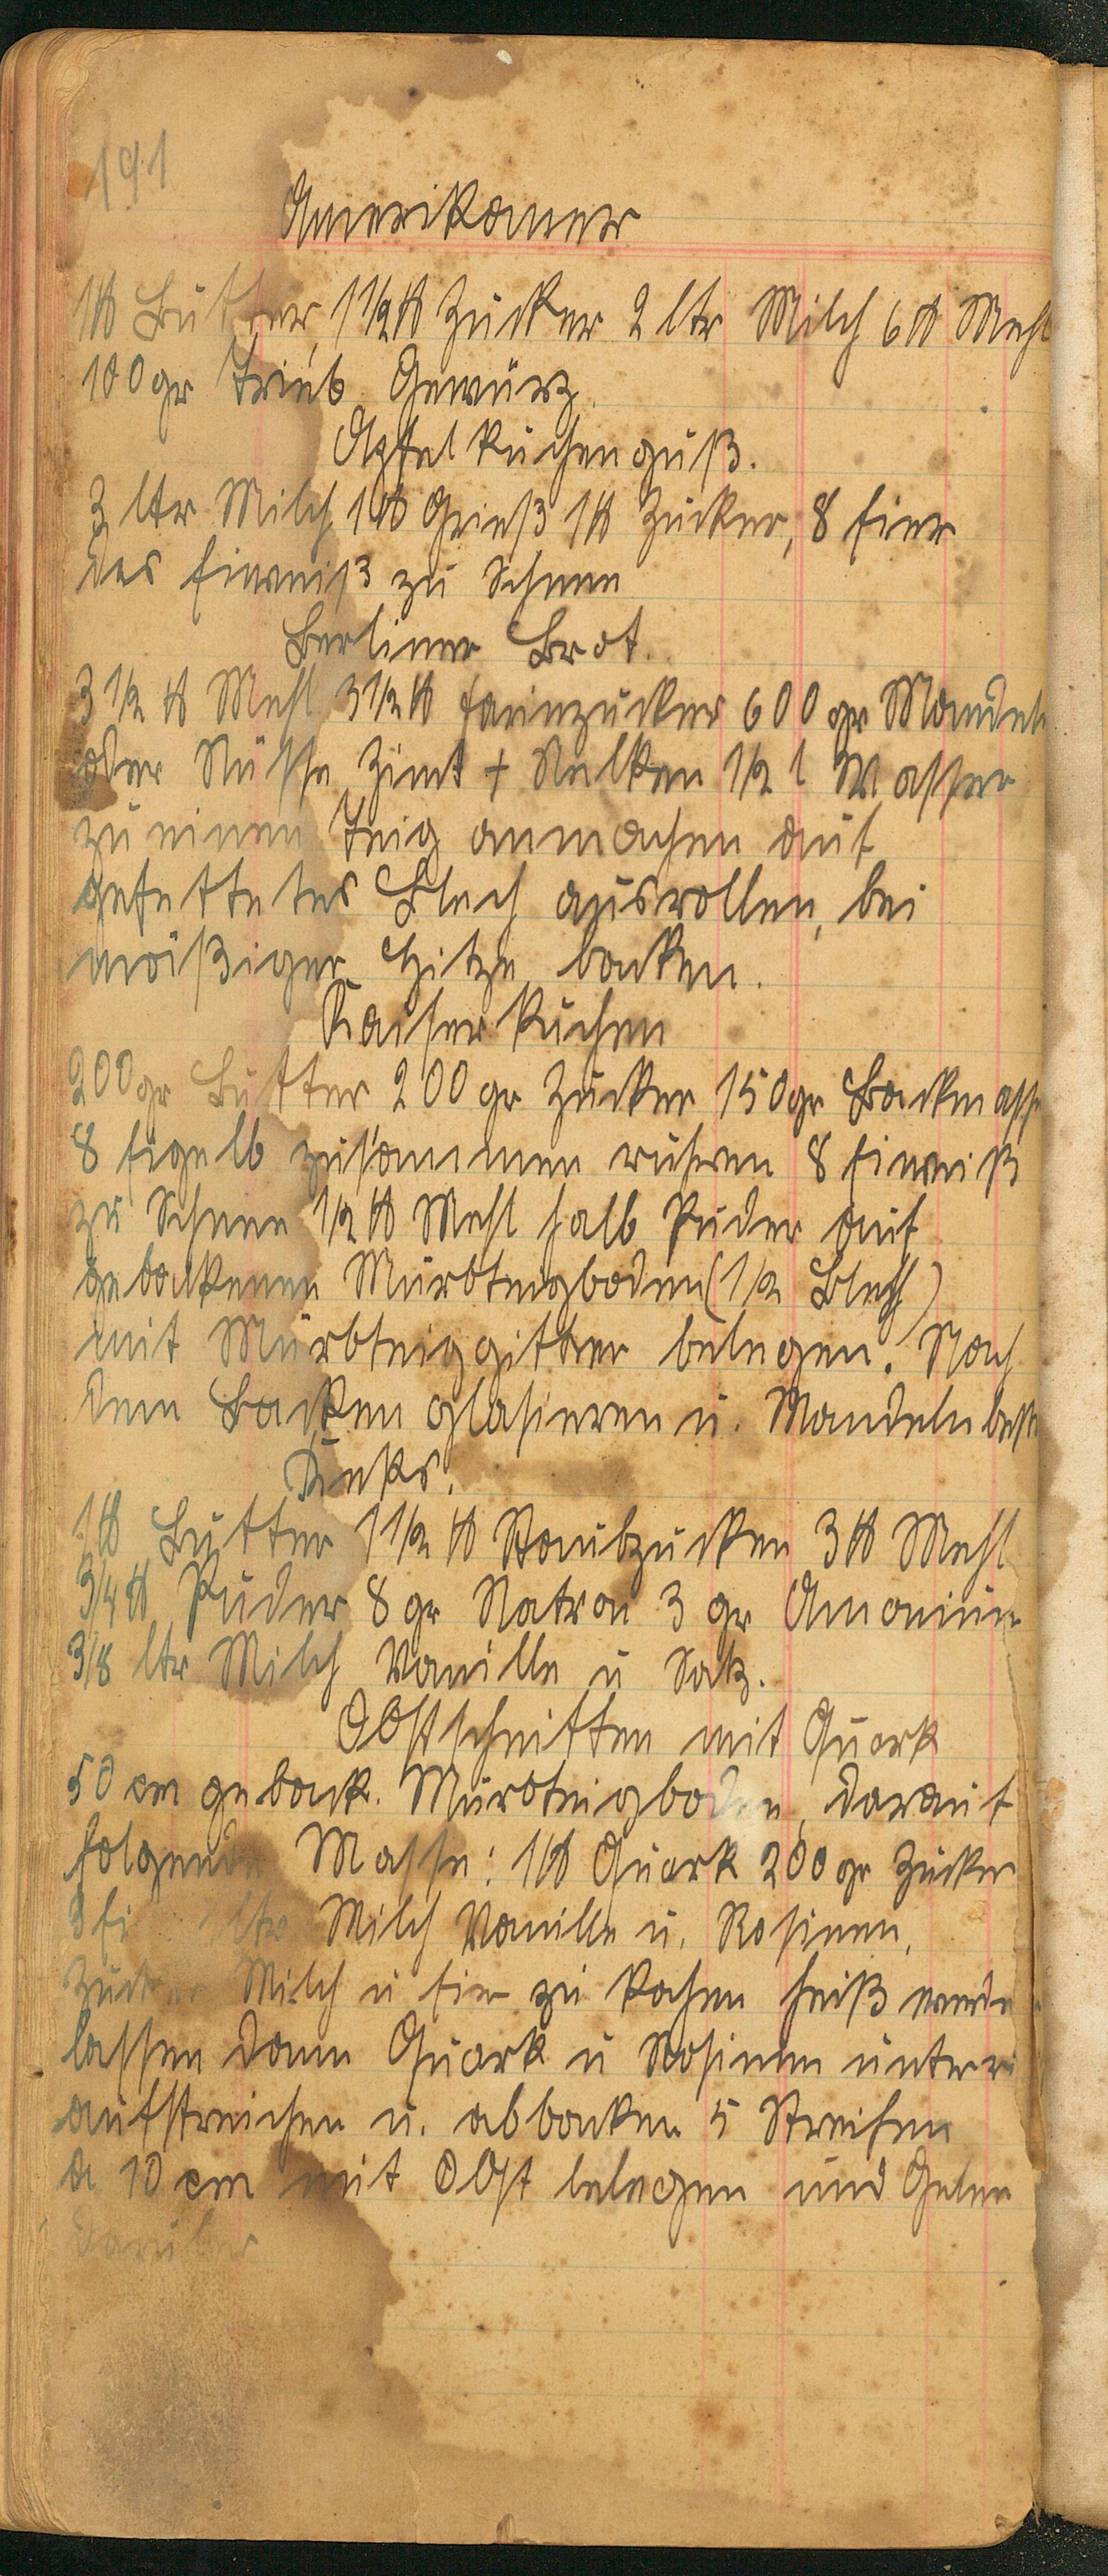 191
Amerikaner
1 ℔ Butter, 1 1/2 ℔ Zucker 2 ltr Milch 6 ℔ Mehl
100 gr Trieb Gewürz.
Apfelkuchenguß.
3 ltr Milch 1 ℔ Grieß 1 ℔ Zucker, 8 Eier
das Eiweiß zu Schnee
Berliner Brot.
3 1/2 ℔ Mehl 3 1/2 ℔ Farinzucker 600 gr Mandeln
oder Nüsse Zimt + Nelken 1/2 l Wasser
zu einen Teig anmachen auf
gefettetes Blech ausrollen, bei
mäßiger Hitze backen.
Kaiserkuchen
200 gr Butter 200 gr Zucker 150 gr Backmasse
8 Eigelb zusammen rühren 8 Eiweiß
zu Schnee 1/2 ℔ Mehl halb Puder auf
gebackenen Mürbteigboden (1/2 Blech)
mit Mürbteiggitter belegen. Nach
dem Backen glasieren u. Mandeln
Keks.
1 ℔ Butter 1 1/2 ℔ Staubzucker 3 ℔ Mehl
3/4 ℔ Puder 8 gr Natron 3 gr Amonium
3/8 ltr Milch Vanille u Salz.
Obstschnitten mit Quark
50 cm geback. Mürbteigboden, darauf
folgende Masse: 1 ℔ Quark 200 gr Zucker
ltr Milch Vanille u. Rosinen,
Zucker Milch u Eier zu kochen heiß werde
lassen dann Quark u Rosinen unter
aufstreichen u. abbacken 5 Streifen
a 10 cm mit Obst belegen und Gelee
darüber